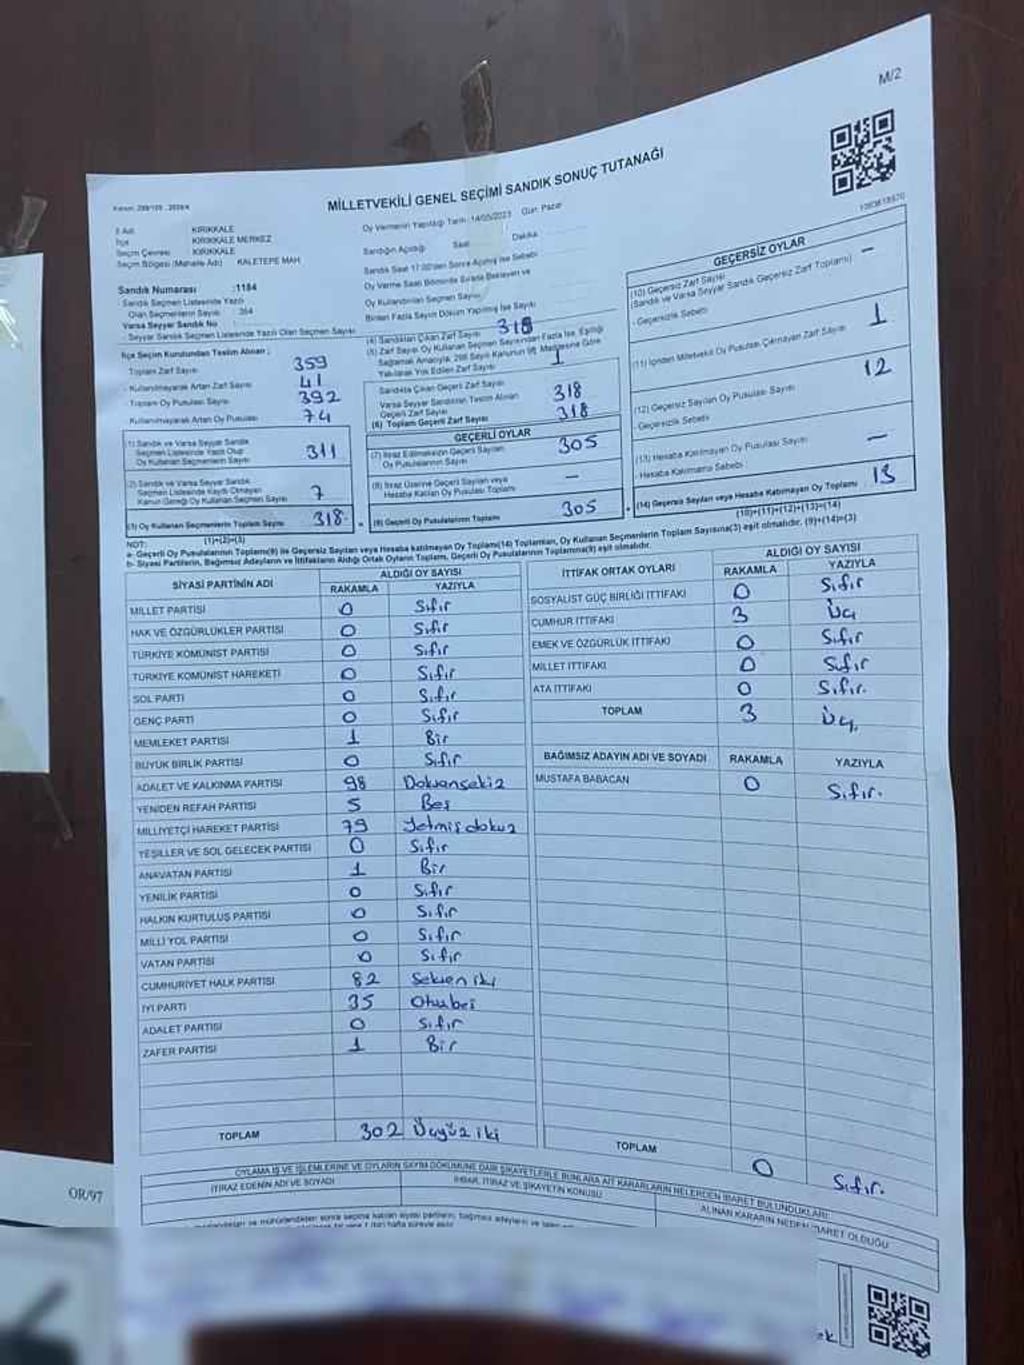 M/2
MİLLETVEKİLİ GENEL SEÇİMİ SANDIK SONUÇ TUTANAĞI
İl Adı KIRIKKALE
İlçe KIRIKKALE MERKEZ
Seçim Çevresi KIRIKKALE
Seçim Bölgesi (Mahalle Adı) KALETEPE MAH
Sandık Numarası :1184
Sandık Seçmen Listesinde Yazılı
Olan Seçmenlerin Sayısı
Varsa Seyyar Sandık No
Seyyar Sandık Seçmen Listesinde Yazılı Olan Seçmen Sayısı
İlçe Seçim Kurulundan Teslim Alınan :
Toplam Zarf Sayısı 359
Kullanılmayarak Artan Zarf Sayısı 41
Toplam Oy Pusulası Sayısı 392
Kullanılmayarak Artan Oy Pusulası 74
(1) Sandık ve Varsa Seyyar Sandık
Seçmen Listesinde Yazılı Olup
Oy Kullanan Seçmenlerin Sayısı 311
(2) Sandık ve Varsa Seyyar Sandık
Seçmen Listesinde Kayıtlı Olmayan
Kanun Gereği Oy Kullanan Seçmen Sayısı 7
(3) Oy Kullanan Seçmenlerin Toplam Sayısı 318
(1)+(2)=(3)
Oy Vermenin Yapıldığı Tarih :14/05/2023 Gün: Pazar
Sandığın Açıldığı Saat Dakika
Sandık Saat 17:00'den Sonra Açılmış İse Sebebi
Oy Verme Saati Bitiminde Sırada Bekleyen ve
Oy Kullandırılan Seçmen Sayısı
Birden Fazla Sayım Döküm Yapılmış İse Sayısı
(4) Sandıktan Çıkan Zarf Sayısı 318
(5) Zarf Sayısı Oy Kullanan Seçmen Sayısından Fazla İse, Eşitliği
Sağlamak Amacıyla, 298 Sayılı Kanunun 98. Maddesine Göre
Yakılarak Yok Edilen Zarf Sayısı 1
Sandıkta Çıkan Geçerli Zarf Sayısı 318
Varsa Seyyar Sandıktan Teslim Alınan
Geçerli Zarf Sayısı
(6) Toplam Geçerli Zarf Sayısı 318
GEÇERLİ OYLAR
(7) İtiraz Edilmeksizin Geçerli Sayılan
Oy Pusulalarının Sayısı 305
(8) İtiraz Üzerine Geçerli Sayılan veya
Hesaba Katılan Oy Pusulası Toplamı —
(9) Geçerli Oy Pusulalarının Toplamı 305
GEÇERSİZ OYLAR
(10) Geçersiz Zarf Sayısı —
(Sandık ve Varsa Seyyar Sandık Geçersiz Zarf Toplamı)
- Geçersizlik Sebebi
(11) İçinden Milletvekili Oy Pusulası Çıkmayan Zarf Sayısı 1
(12) Geçersiz Sayılan Oy Pusulası Sayısı 12
- Geçersizlik Sebebi
(13) Hesaba Katılmayan Oy Pusulası Sayısı —
- Hesaba Katılmama Sebebi
(14) Geçersiz Sayılan veya Hesaba Katılmayan Oy Toplamı 13
(10)+(11)+(12)+(13)=(14)
NOT:
a- Geçerli Oy Pusulalarının Toplamı(9) ile Geçersiz Sayılan veya Hesaba katılmayan Oy Toplamı(14) Toplamları, Oy Kullanan Seçmenlerin Toplam Sayısına(3) eşit olmalıdır. (9)+(14)=(3)
b- Siyasi Partilerin, Bağımsız Adayların ve İttifakların Aldığı Ortak Oyların Toplamı, Geçerli Oy Pusulalarının Toplamına(9) eşit olmalıdır.
SİYASİ PARTİNİN ADI ALDIĞI OY SAYISI
RAKAMLA YAZIYLA
MİLLET PARTİSİ 0 Sıfır
HAK VE ÖZGÜRLÜKLER PARTİSİ 0 Sıfır
TÜRKİYE KOMÜNİST PARTİSİ 0 Sıfır
TÜRKİYE KOMÜNİST HAREKETİ 0 Sıfır
SOL PARTİ 0 Sıfır
GENÇ PARTİ 0 Sıfır
MEMLEKET PARTİSİ 1 Bir
BÜYÜK BİRLİK PARTİSİ 0 Sıfır
ADALET VE KALKINMA PARTİSİ 98 Doksansekiz
YENİDEN REFAH PARTİSİ 5 Beş
MİLLİYETÇİ HAREKET PARTİSİ 79 Yetmişdokuz
YEŞİLLER VE SOL GELECEK PARTİSİ 0 Sıfır
ANAVATAN PARTİSİ 1 Bir
YENİLİK PARTİSİ 0 Sıfır
HALKIN KURTULUŞ PARTİSİ 0 Sıfır
MİLLİ YOL PARTİSİ 0 Sıfır
VATAN PARTİSİ 0 Sıfır
CUMHURİYET HALK PARTİSİ 82 Seksen iki
İYİ PARTİ 35 Otuzbeş
ADALET PARTİSİ 0 Sıfır
ZAFER PARTİSİ 1 Bir
TOPLAM 302 Üçyüz iki
İTTİFAK ORTAK OYLARI ALDIĞI OY SAYISI
RAKAMLA YAZIYLA
SOSYALİST GÜÇ BİRLİĞİ İTTİFAKI 0 Sıfır
CUMHUR İTTİFAKI 3 Üç
EMEK VE ÖZGÜRLÜK İTTİFAKI 0 Sıfır
MİLLET İTTİFAKI 0 Sıfır
ATA İTTİFAKI 0 Sıfır.
TOPLAM 3 Üç.
BAĞIMSIZ ADAYIN ADI VE SOYADI RAKAMLA YAZIYLA
MUSTAFA BABACAN 0 Sıfır.
TOPLAM 0 Sıfır.
OYLAMA İŞ VE İŞLEMLERİNE VE OYLARIN SAYIM DÖKÜMÜNE DAİR ŞİKAYETLERLE BUNLARA AİT KARARLARIN NELERDEN İBARET BULUNDUKLARI
İTİRAZ EDENİN ADI VE SOYADI
İHBAR, İTİRAZ VE ŞİKAYETİN KONUSU
ALINAN KARARIN NEDEN İBARET OLDUĞU
OR/97